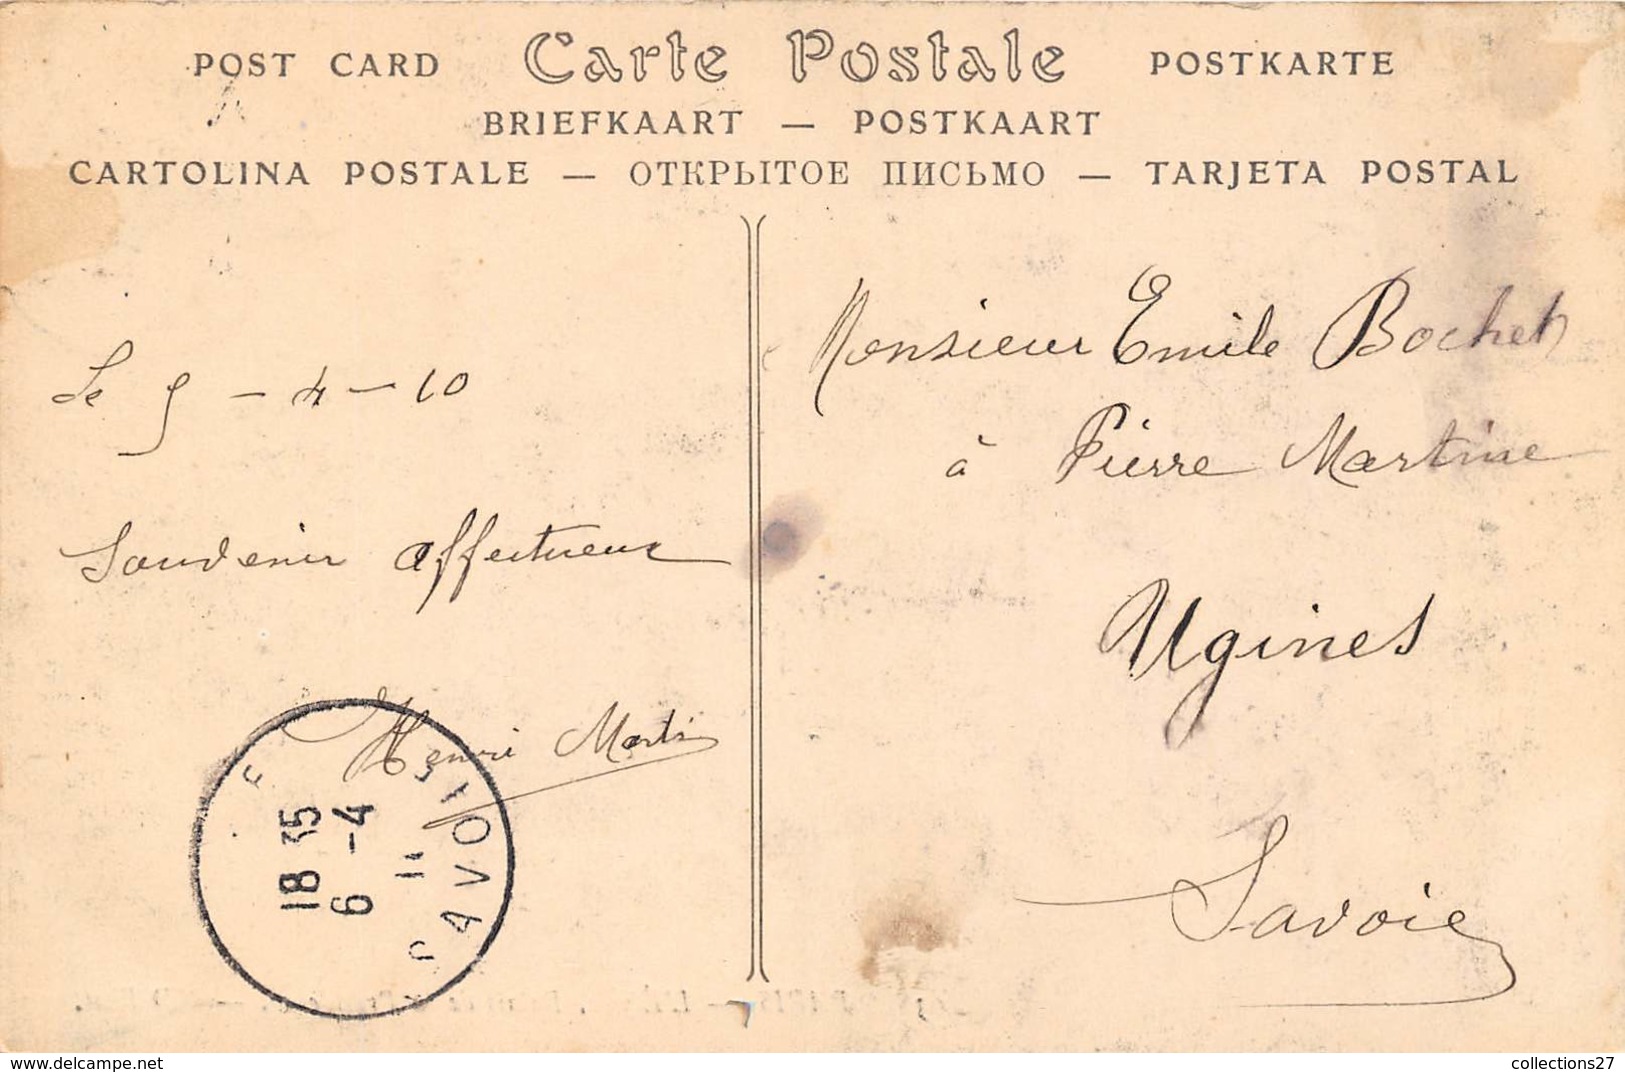 POST CARD Carte Postale POSTKARTE
BRIEFKAART — POSTKAART
CARTOLINA POSTALE — ОТКРЫТОЕ ПИСЬМО — TARJETA POSTAL
Le 5 - 4 - 10
Souvenir affectueux
Henri Martin
18 35
6 -4
SAVOI
Monsieur Emile Bochet
à Pierre Martine
Ugines
Savoie
collections27
www.delcampe.net